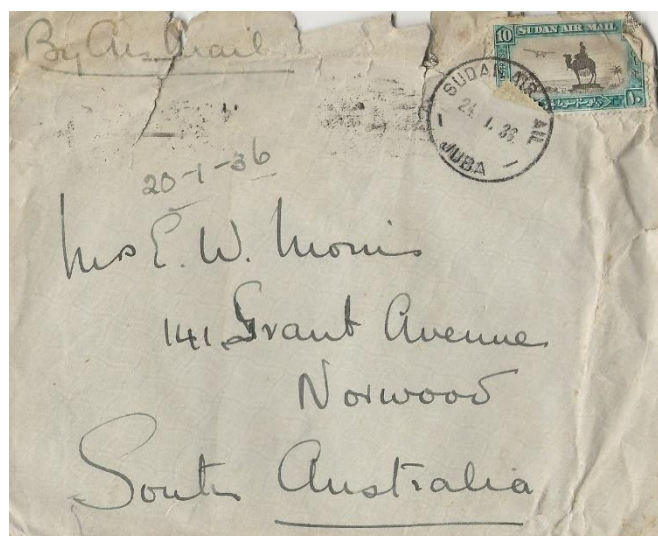 By Air Mail
10 SUDAN AIR MAIL
SUDAN AIR MAIL
24. 1. 36
JUBA
20-1-36
Mrs E. W. Morris
141, Grant Avenue
Norwood
South Australia